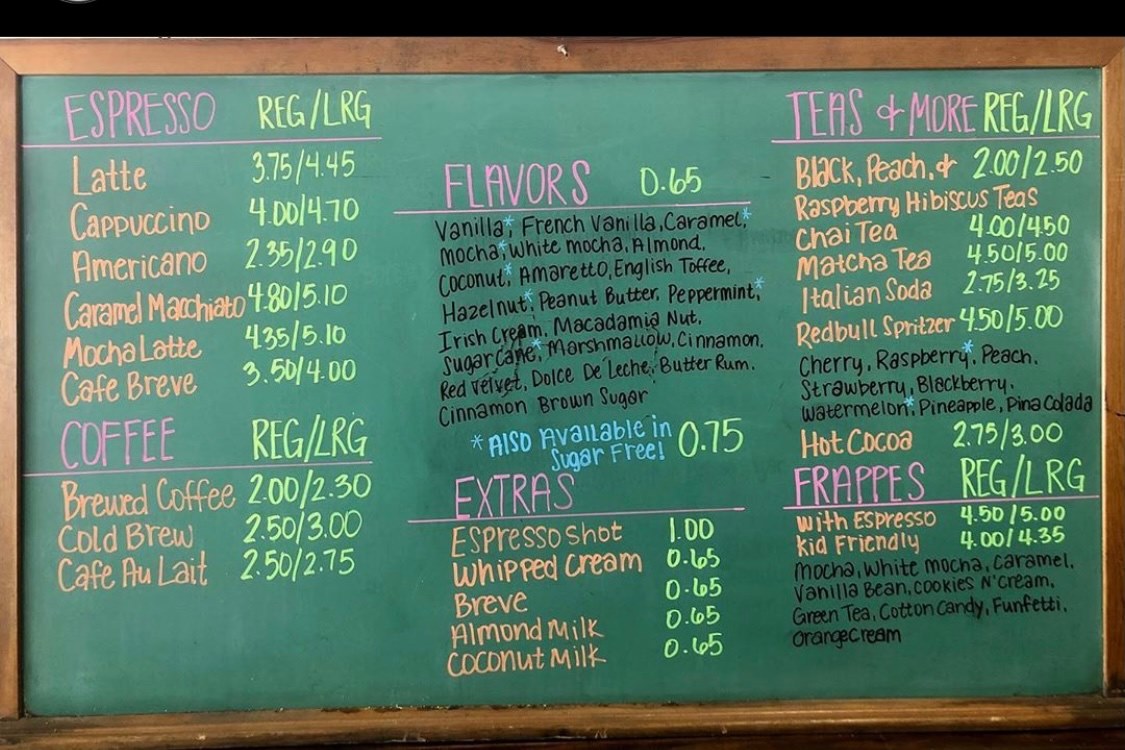 ESPRESSO REG/LRG
Latte 3.75/4.45
Cappuccino 4.00/4.70
Americano 2.35/2.90
Caramel Macchiato 4.80/5.10
Mocha Latte 4.35/5.10
Cafe Breve 3.50/4.00
COFFEE REG/LRG
Brewed Coffee 2.00/2.30
Cold Brew 2.50/3.00
Cafe Au Lait 2.50/2.75
FLAVORS 0.65
Vanilla*, French Vanilla, Caramel,*
Mocha*, White mocha, Almond,
Coconut,* Amaretto, English Toffee,
Hazelnut,* Peanut Butter, Peppermint,*
Irish Cream, Macadamia Nut,
Sugar Cane,* Marshmallow, Cinnamon,
Red Velvet, Dolce De Leche, Butter Rum.
Cinnamon Brown Sugar
*Also Available in 0.75
Sugar Free!
EXTRAS
Espresso Shot 1.00
Whipped Cream 0.65
Breve 0.65
Almond Milk 0.65
Coconut Milk 0.65
TEAS & MORE REG/LRG
Black, Peach, & 2.00/2.50
Raspberry Hibiscus Teas
Chai Tea 4.00/4.50
Matcha Tea 4.50/5.00
Italian Soda 2.75/3.25
Redbull Spritzer 4.50/5.00
Cherry, Raspberry,* Peach.
Strawberry, Blackberry.
Watermelon,* Pineapple, Pina Colada
Hot Cocoa 2.75/3.00
FRAPPES REG/LRG
With Espresso 4.50/5.00
Kid Friendly 4.00/4.35
Mocha, White mocha, Caramel,
Vanilla Bean, Cookies N' Cream,
Green Tea, Cotton Candy, Funfetti,
Orange Cream